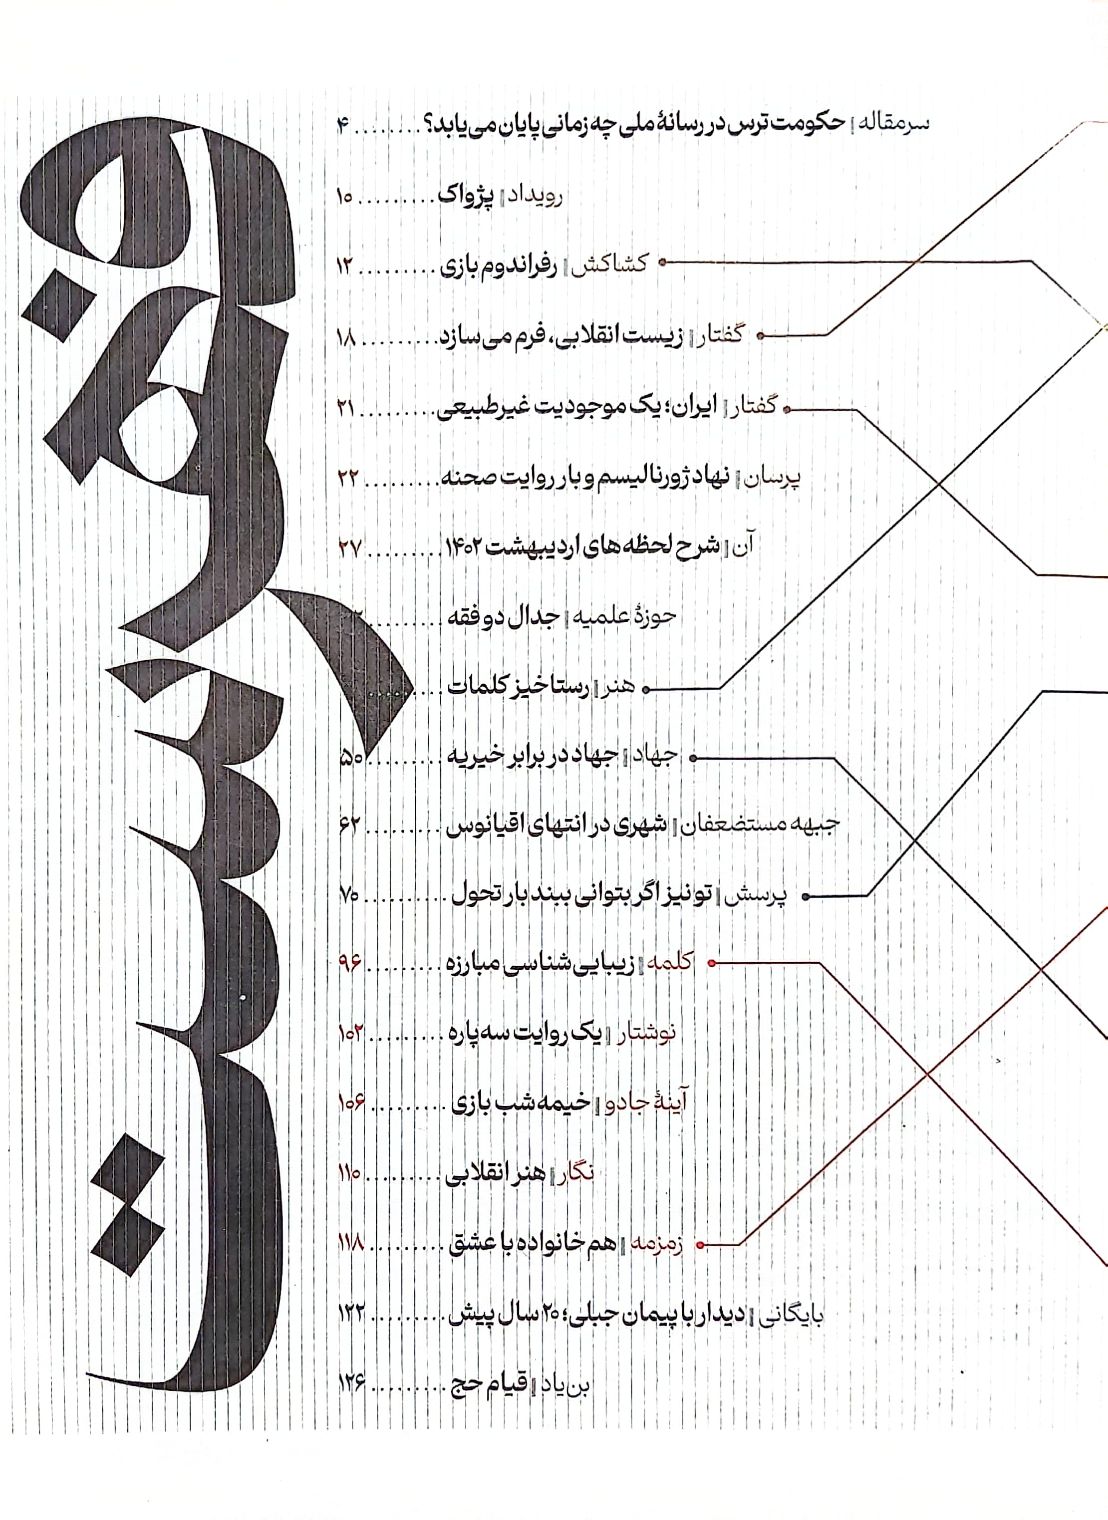 فهرست
سرمقاله | حکومت ترس در رسانهٔ ملی چه زمانی پایان می‌یابد؟ ........ ۴
رویداد | پژواک ......... ۱۰
کشاکش | رفراندوم بازی ......... ۱۲
گفتار | زیست انقلابی، فرم می‌سازد ......... ۱۸
گفتار | ایران؛ یک موجودیت غیرطبیعی ......... ۲۱
پرسان | نهاد ژورنالیسم و بار روایت صحنه ......... ۲۲
آن | شرح لحظه‌های اردیبهشت ۱۴۰۲ ......... ۲۷
حوزهٔ علمیه | جدال دو فقه .........
هنر | رستاخیز کلمات .........
جهاد | جهاد در برابر خیریه ......... ۵۰
جبهه مستضعفان | شهری در انتهای اقیانوس ......... ۶۲
پرسش | تو نیز اگر بتوانی ببند بار تحول ......... ۷۰
کلمه | زیبایی‌شناسی مبارزه ......... ۹۶
نوشتار | یک روایت سه‌پاره ......... ۱۰۲
آینهٔ جادو | خیمه شب بازی ......... ۱۰۶
نگار | هنر انقلابی ......... ۱۱۰
زمزمه | هم خانواده با عشق ......... ۱۱۸
بایگانی | دیدار با پیمان جبلی؛ ۲۰ سال پیش ......... ۱۲۲
بن‌یاد | قیام حج ......... ۱۲۶